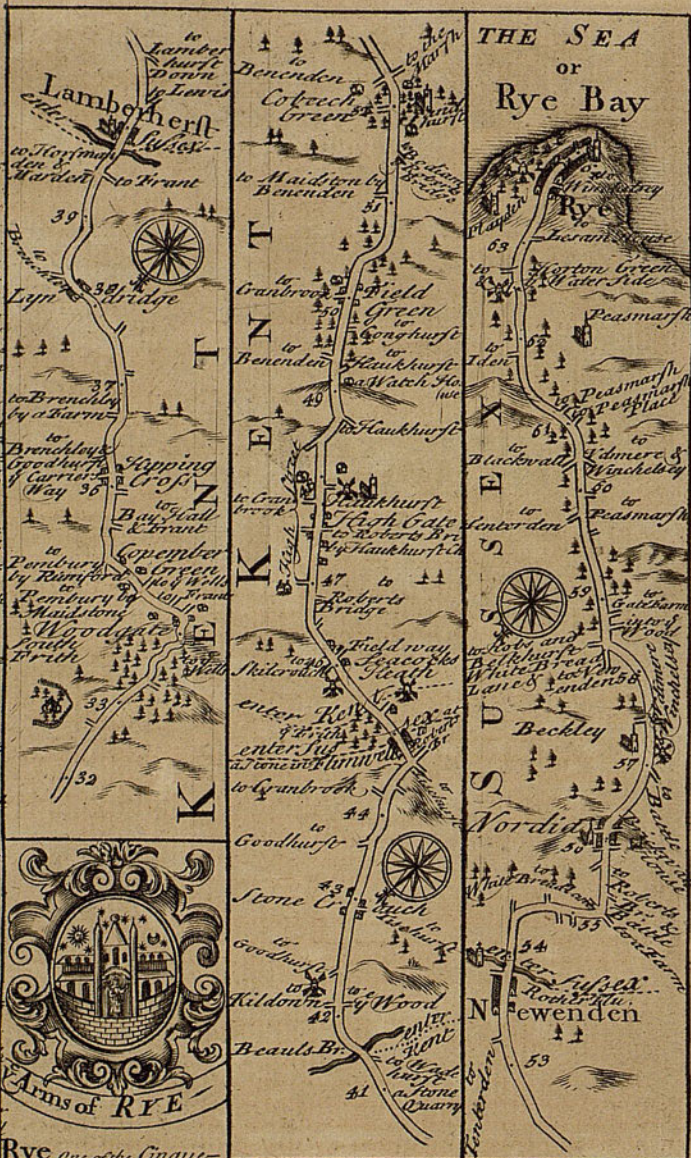 to
Lamber
hurst
Down
to Lewis
Lamberherst
enter
Sussex
to Horsmon
den &
Marden
to Frant
39
to
Brenchly
38
Lyndridge
37
to Brenchly
by a Farm
to
Brenchley &
Goodhurst
y Carriers
Way
36
Kipping
Cross
to
Bay Hall
& Frant
to
Pembury
by Rumford
Copember
Green
to Pembury
to
Maidstone
Woodgate
South
Frith
to y
Wells
33
32
KENT
y Arms of RYE
Rye One of the Cinque-
to the
Marsh
to
Benenden
Cobeech
Green
52
Sandhurst
to Maidston by
Benenden
51
to
Cranbrook
Field
Green
50
to
Conghurst
to
Benenden
to
Haukhurst
a Watch Ho
use
49
to Haukhurst
to Cran
brook
Haukhurst
High Gate
to Roberts Bri
by Haukhurst Ch
47
to
Roberts
Bridge
Field way
46
Seacocks
Heath
enter Kent
enter Sus
sex at
a Stone in Flimwell
to Cranbrook
44
to
Goodhurst
43
Stone Cr
to
Goodhurst
to
Kildown
to
y Wood
42
Beauls Br.
enter
Kent
to Wade
hurst
a Stone
Quarry
41
KENT
THE SEA
or
Rye Bay
to
Winchelsey
Playden
Rye
to
Lesam House
63
to
Horton Green
& Water Side
Peasmarsh
62
to
Iden
to Peasmarsh
to Peasmarsh
Place
61
to
Blackwall
to
Udmere &
Winchelsey
60
to
Tenterden
to
Peasmarsh
59
to
Gate Farm
into y
Wood
to Robs. and
Belkhurst
White Bread
Lane & to New
enden
58
Beckley
57
to
Battle
Nordia
56
to
White Bread Lane
to Roberts
Br. &
Battle
to a Farm
55
54
enter
Sussex
Rother Flu.
Newenden
53
to
Tenterden
SUSSEX